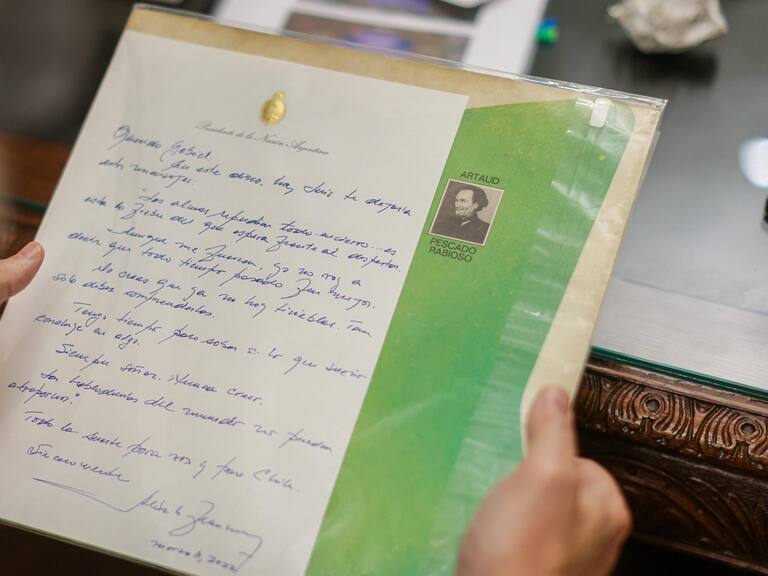 Presidente de la Nación Argentina
Querido Gabriel
En este disco, hoy Luis te dejaría
este mensaje:
"Las almas repudian todo encierro... es
esta la fiebre del que espera frente al despertar.
Aunque me fuercen, yo no voy a
decir que todo tiempo pasado fue mejor.
No creas que ya no hay tinieblas. Tan
solo debes comprenderlas.
Tengo tiempo para saber si lo que sueño
concluye en algo.
Siempre soñar. Nunca creer.
Las habladurías del mundo no pueden
atraparnos."
Toda la suerte para vos y para Chile.
Sinceramente
Alberto Fernández
marzo 11, 2022
ARTAUD
PESCADO
RABIOSO